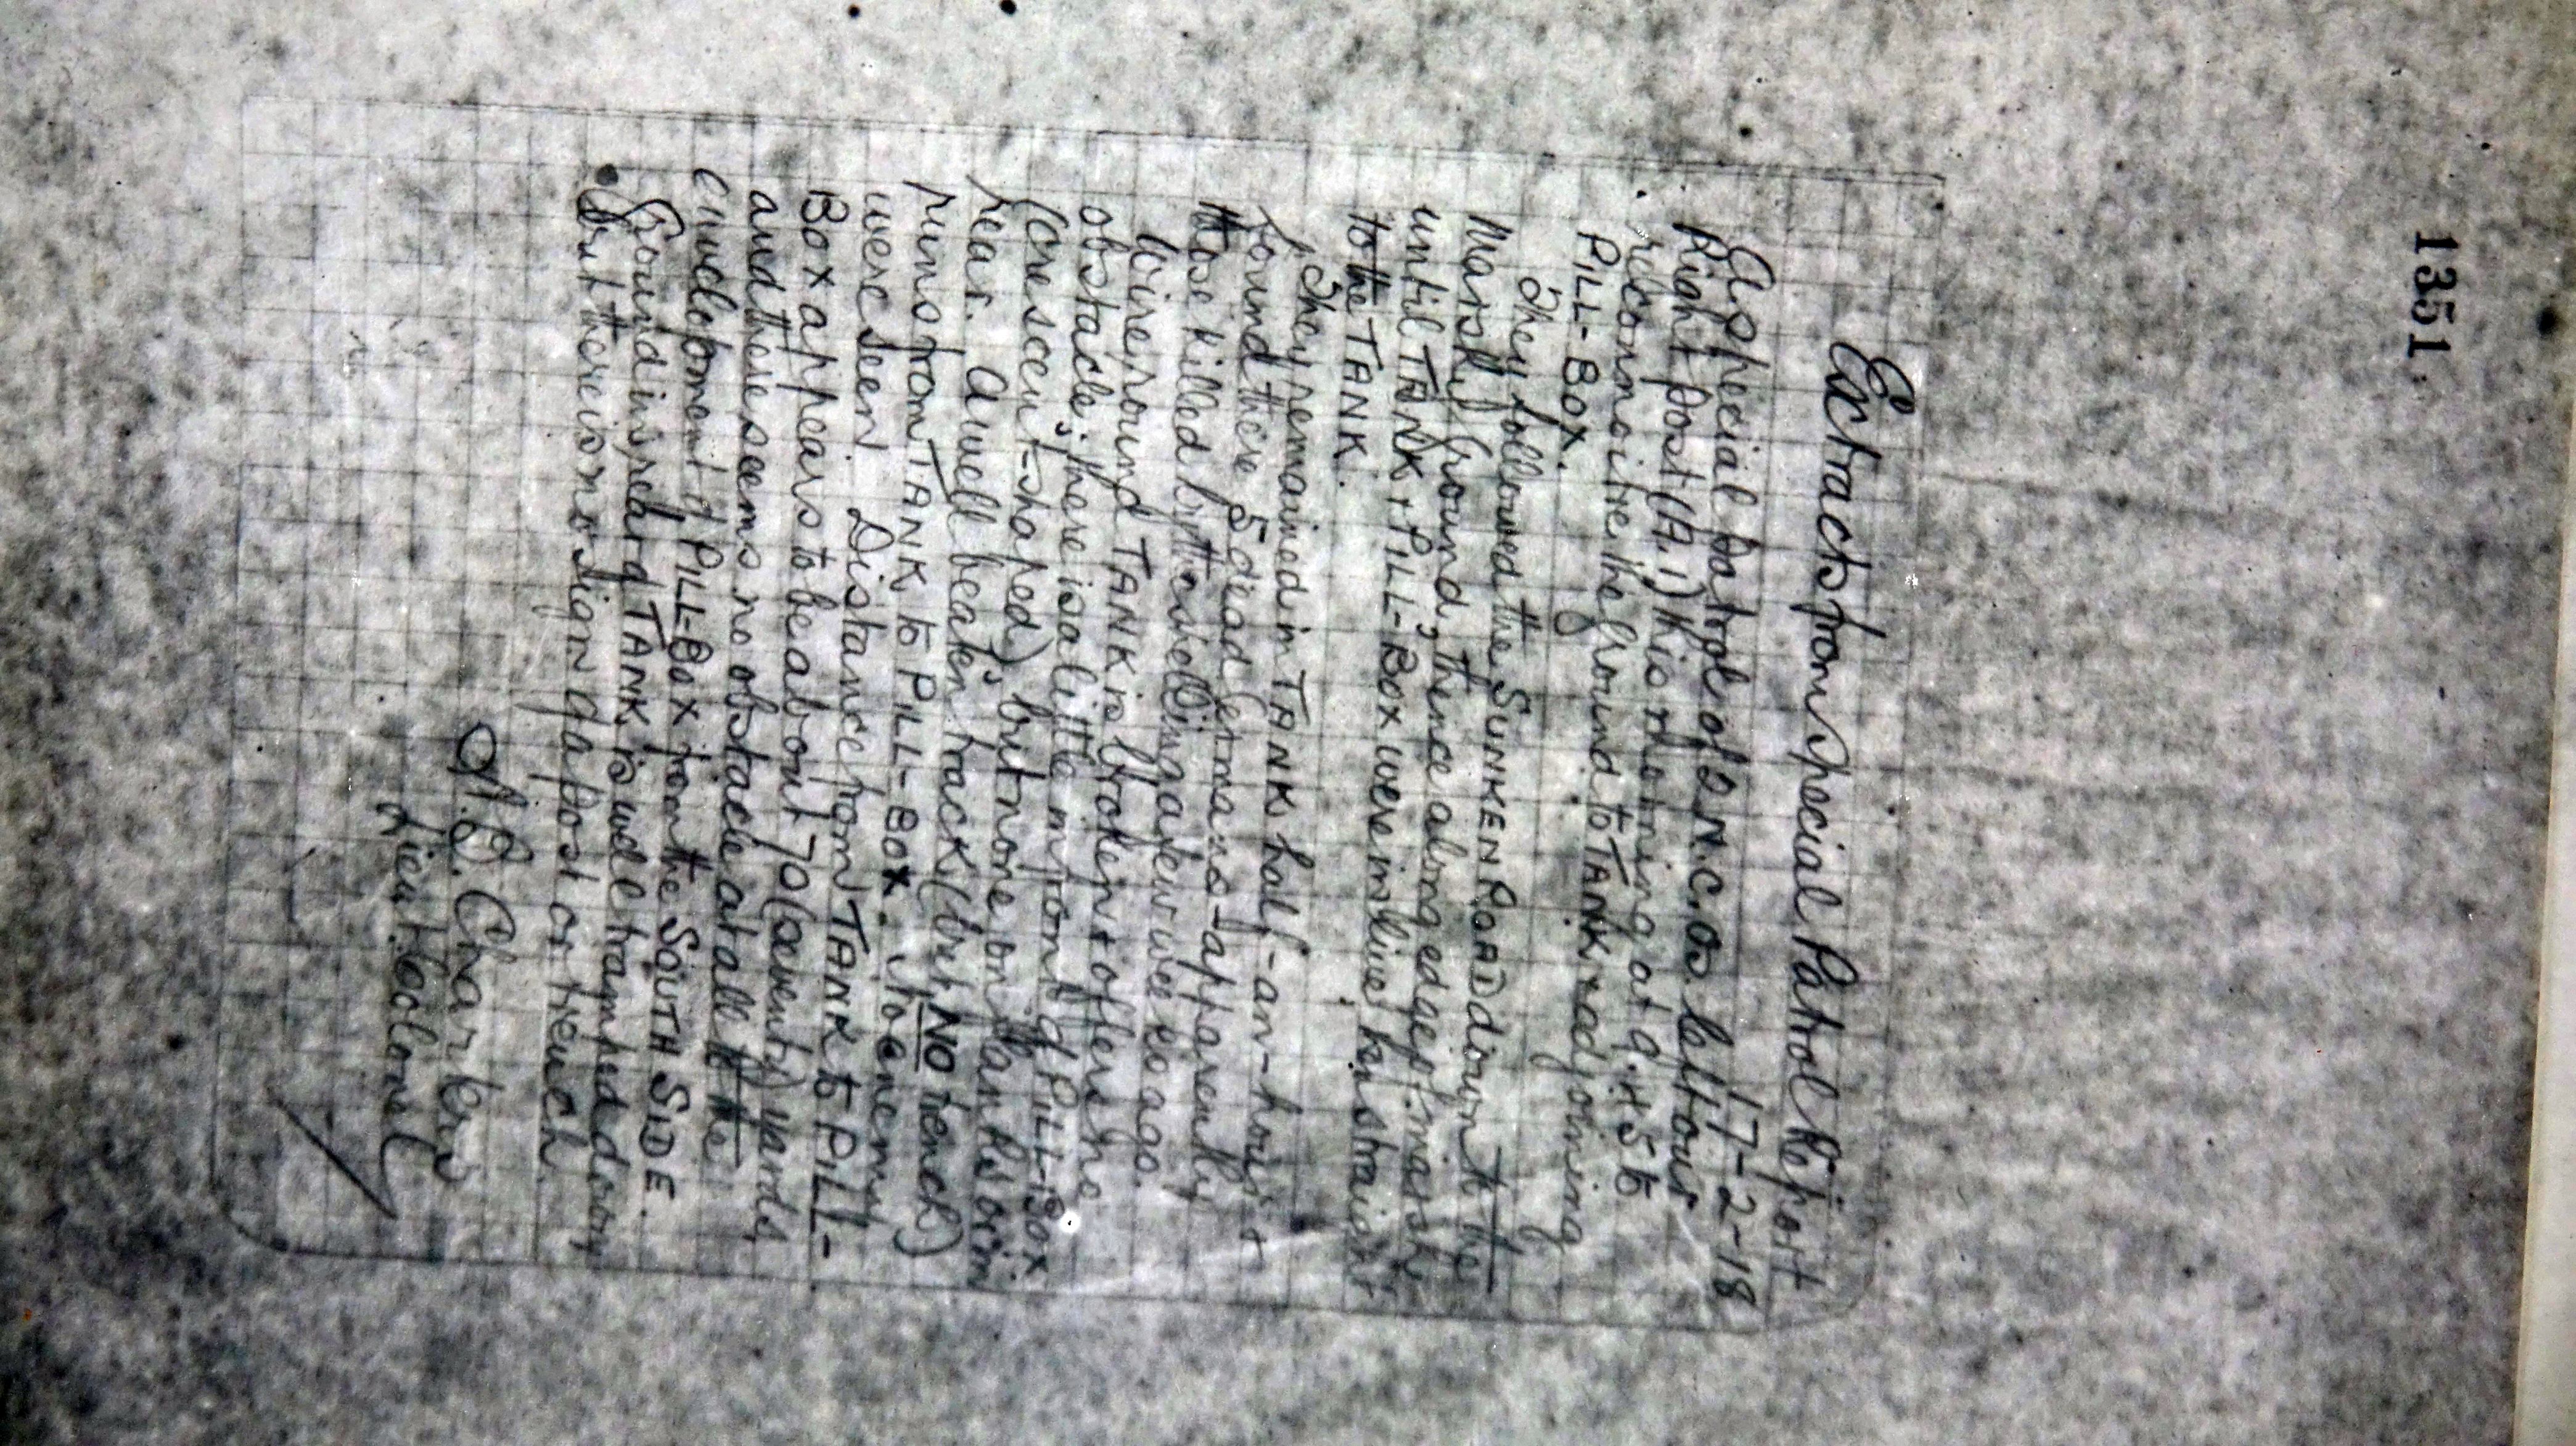 1351
Extracts from Special Patrol Report
17-2-18
A special patrol of 2 N.C.Os left our
Right post (A.1) this morning at 9.45 to
reconnoitre the ground to TANK & adjoining
PILL-BOX.
They followed the SUNKEN ROAD down to the
Marshy ground, thence along edge of marsh
until TANK & PILL-BOX were in line then straight
to the TANK.
They remained in TANK half-an-hour &
found there 5 dead Germans - apparently
those killed by the shelling a few weeks ago.
Wire round TANK is broken & offers no
obstacle; there is a little in front of PILL-BOX
(crescent-shaped), but none on flanks or in
rear. A well beaten track (but NO trench)
runs from TANK to PILL-BOX. No enemy
were seen. Distance from TANK to PILL-
BOX appears to be about 70 (seventy) yards
and there seems no obstacle at all to the
envelopment of PILL-BOX from the SOUTH SIDE.
Ground in rear of TANK is well tramped down
but there is no sign of a post or trench
Lieut Colonel